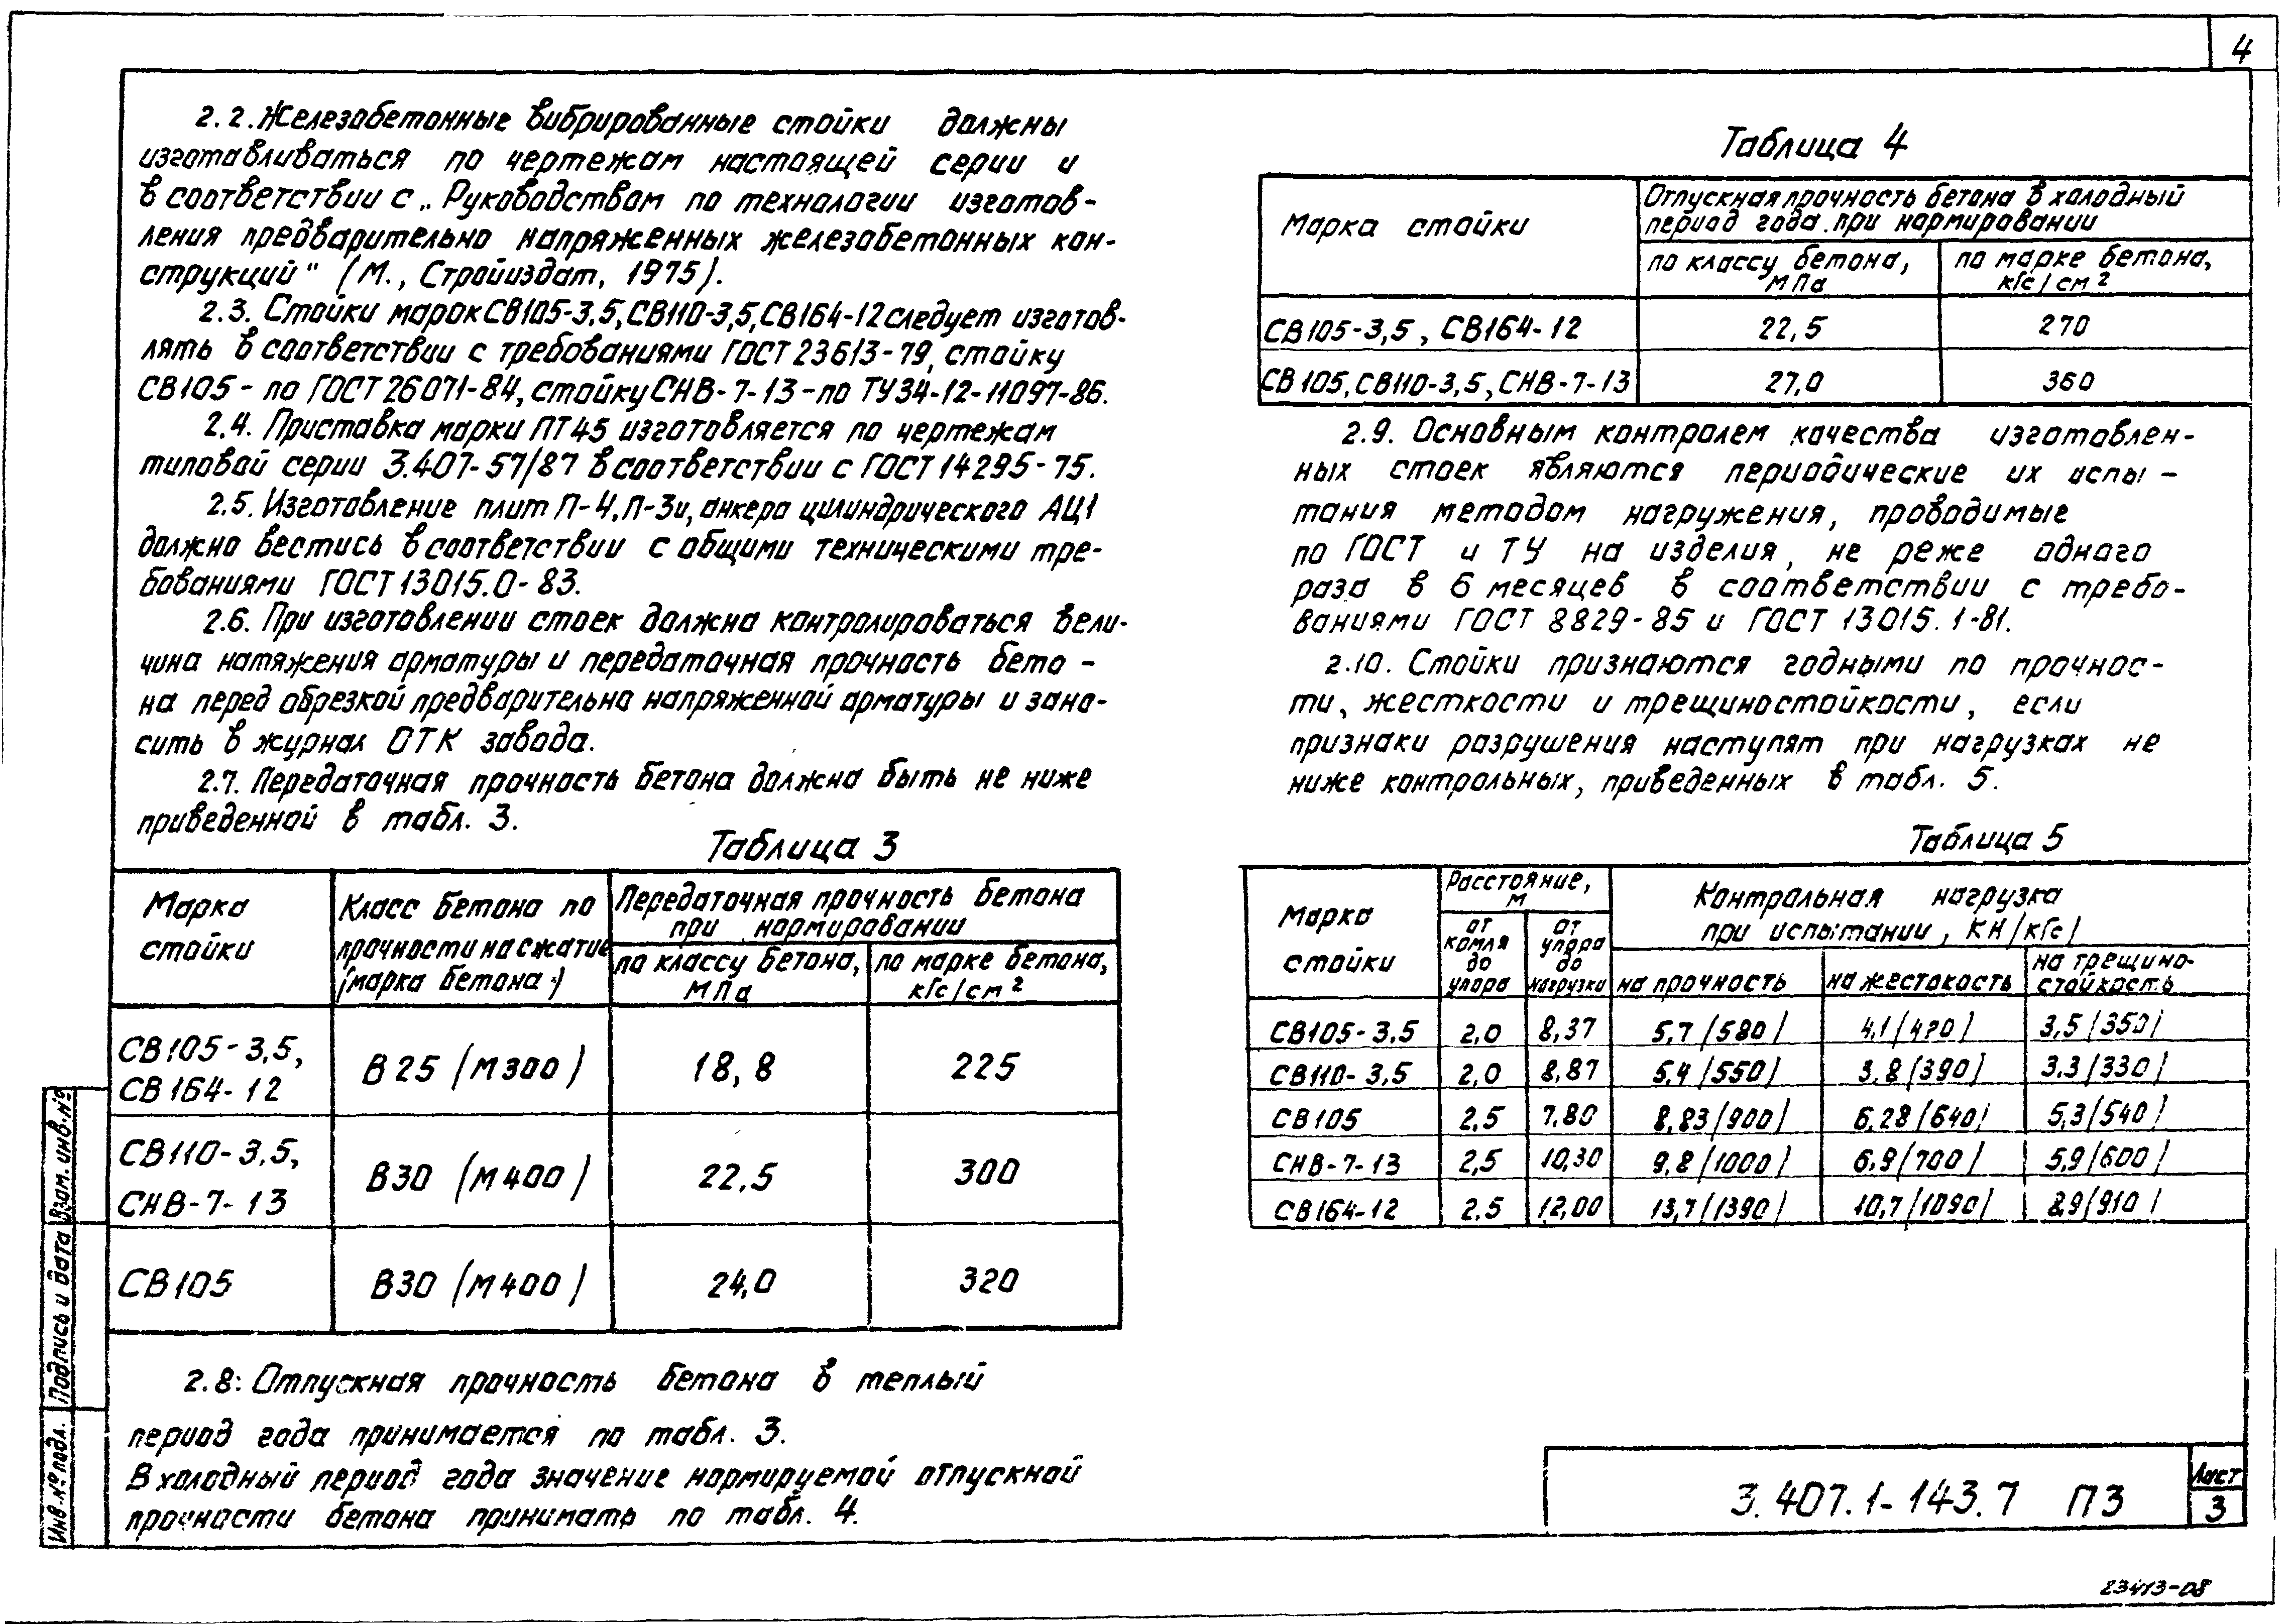 4
2.2. Железобетонные вибрированные стойки должны
изготавливаться по чертежам настоящей серии и
в соответствии с „Руководством по технологии изготов-
ления предварительно напряженных железобетонных кон-
струкций" (М., Стройиздат, 1975).
2.3. Стойки марок СВ105-3,5, СВ110-3,5, СВ164-12 следует изготов-
лять в соответствии с требованиями ГОСТ 23613-79, стойку
СВ105 - по ГОСТ 26071-84, стойку СНВ-7-13 - по ТУ34-12-11097-86.
2.4. Приставка марки ПТ45 изготовляется по чертежам
типовой серии 3.407-57/87 в соответствии с ГОСТ 14295-75.
2.5. Изготовление плит П-4, П-3и, анкера цилиндрического АЦ1
должно вестись в соответствии с общими техническими тре-
бованиями ГОСТ 13015.0-83.
2.6. При изготовлении стоек должна контролироваться вели-
чина натяжения арматуры и передаточная прочность бето-
на перед обрезкой предварительно напряженной арматуры и зано-
сить в журнал ОТК завода.
2.7. Передаточная прочность бетона должна быть не ниже
приведенной в табл. 3.
Таблица 3
Марка стойки
Класс бетона по прочности на сжатие (марка бетона)
Передаточная прочность бетона при нормировании
по классу бетона, МПа
по марке бетона, кгс/см²
СВ105-3,5, СВ164-12 В25 (М300) 18,8 225
СВ110-3,5, СНВ-7-13 В30 (М400) 22,5 300
СВ105 В30 (М400) 24,0 320
2.8. Отпускная прочность бетона в теплый
период года принимается по табл. 3.
В холодный период года значение нормируемой отпускной
прочности бетона принимать по табл. 4.
Таблица 4
Марка стойки
Отпускная прочность бетона в холодный
период года при нормировании
по классу бетона, МПа
по марке бетона, кгс/см²
СВ105-3,5, СВ164-12 22,5 270
СВ105, СВ110-3,5, СНВ-7-13 27,0 360
2.9. Основным контролем качества изготовлен-
ных стоек являются периодические их испы-
тания методом нагружения, проводимые
по ГОСТ и ТУ на изделия, не реже одного
раза в 6 месяцев в соответствии с требо-
ваниями ГОСТ 8829-85 и ГОСТ 13015.1-81.
2.10. Стойки признаются годными по прочнос-
ти, жесткости и трещиностойкости, если
признаки разрушения наступят при нагрузках не
ниже контрольных, приведенных в табл. 5.
Таблица 5
Марка стойки
Расстояние, м
от комля до упора
от упора до нагрузки
Контрольная нагрузка
при испытании, КН/кгс/
на прочность
на жестокость
на трещиностойкость
СВ105-3,5 2,0 8,37 5,7/580/ 4,1/420/ 3,5/350/
СВ110-3,5 2,0 8,87 5,4/550/ 3,8/390/ 3,3/330/
СВ105 2,5 7,80 8,83/900/ 6,28/640/ 5,3/540/
СНВ-7-13 2,5 10,30 9,8/1000/ 6,9/700/ 5,9/600/
СВ164-12 2,5 12,00 13,7/1390/ 10,7/1090/ 8,9/910/
Инв.№ подл.
Подпись и дата
Взам. инв.№
3.407.1-143.7 ПЗ
Лист
3
23413-08